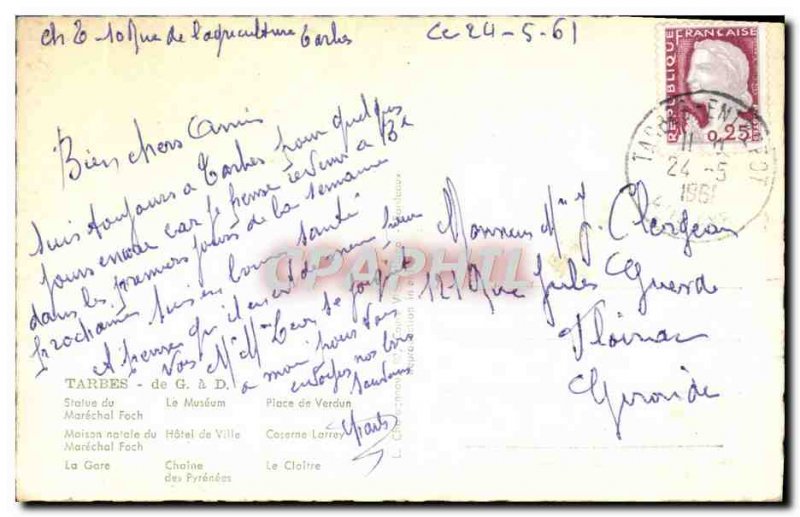 ch T - 10 Rue de l'agriculture Tarbes
Ce 24-5-61
REPUBLIQUE FRANÇAISE
0,25
24-5
1961
Bien chers Amis
Suis toujours a Tarbes pour quelques
jours encore car je pense revenir a Bx
dans les premiers jours de la semaine
prochaine suis en bonne santé
A penser qu'il en est de même pour
Vous Mr Mme se joignent
a moi pour Vous
envoyer nos bons
Monsieur Mme J. Clergeau
121 Rue Jules Guesde
Floirac
Gironde
CPAPHIL
TARBES - de G. à D.
Statue du Maréchal Foch
Le Muséum
Place de Verdun
Maison natale du Maréchal Foch
Hôtel de Ville
Caserne Larrey
La Gare
Chaîne des Pyrénées
Le Cloître